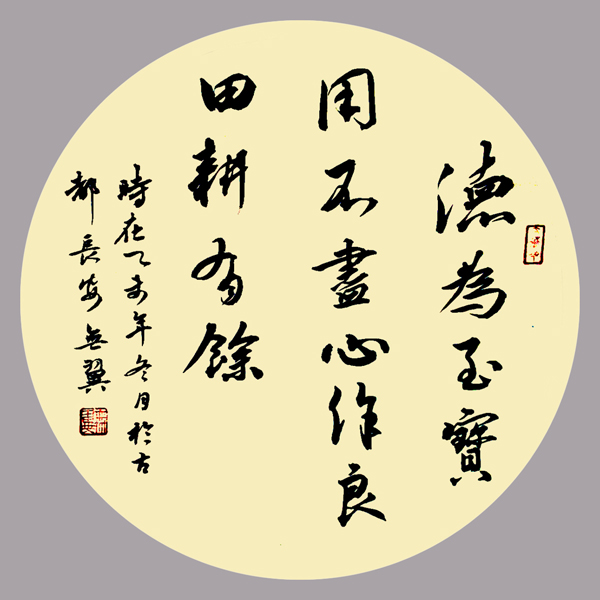 德為至寶
用不盡心作良
田耕有餘
時在乙未年冬月於古
都長安無翼